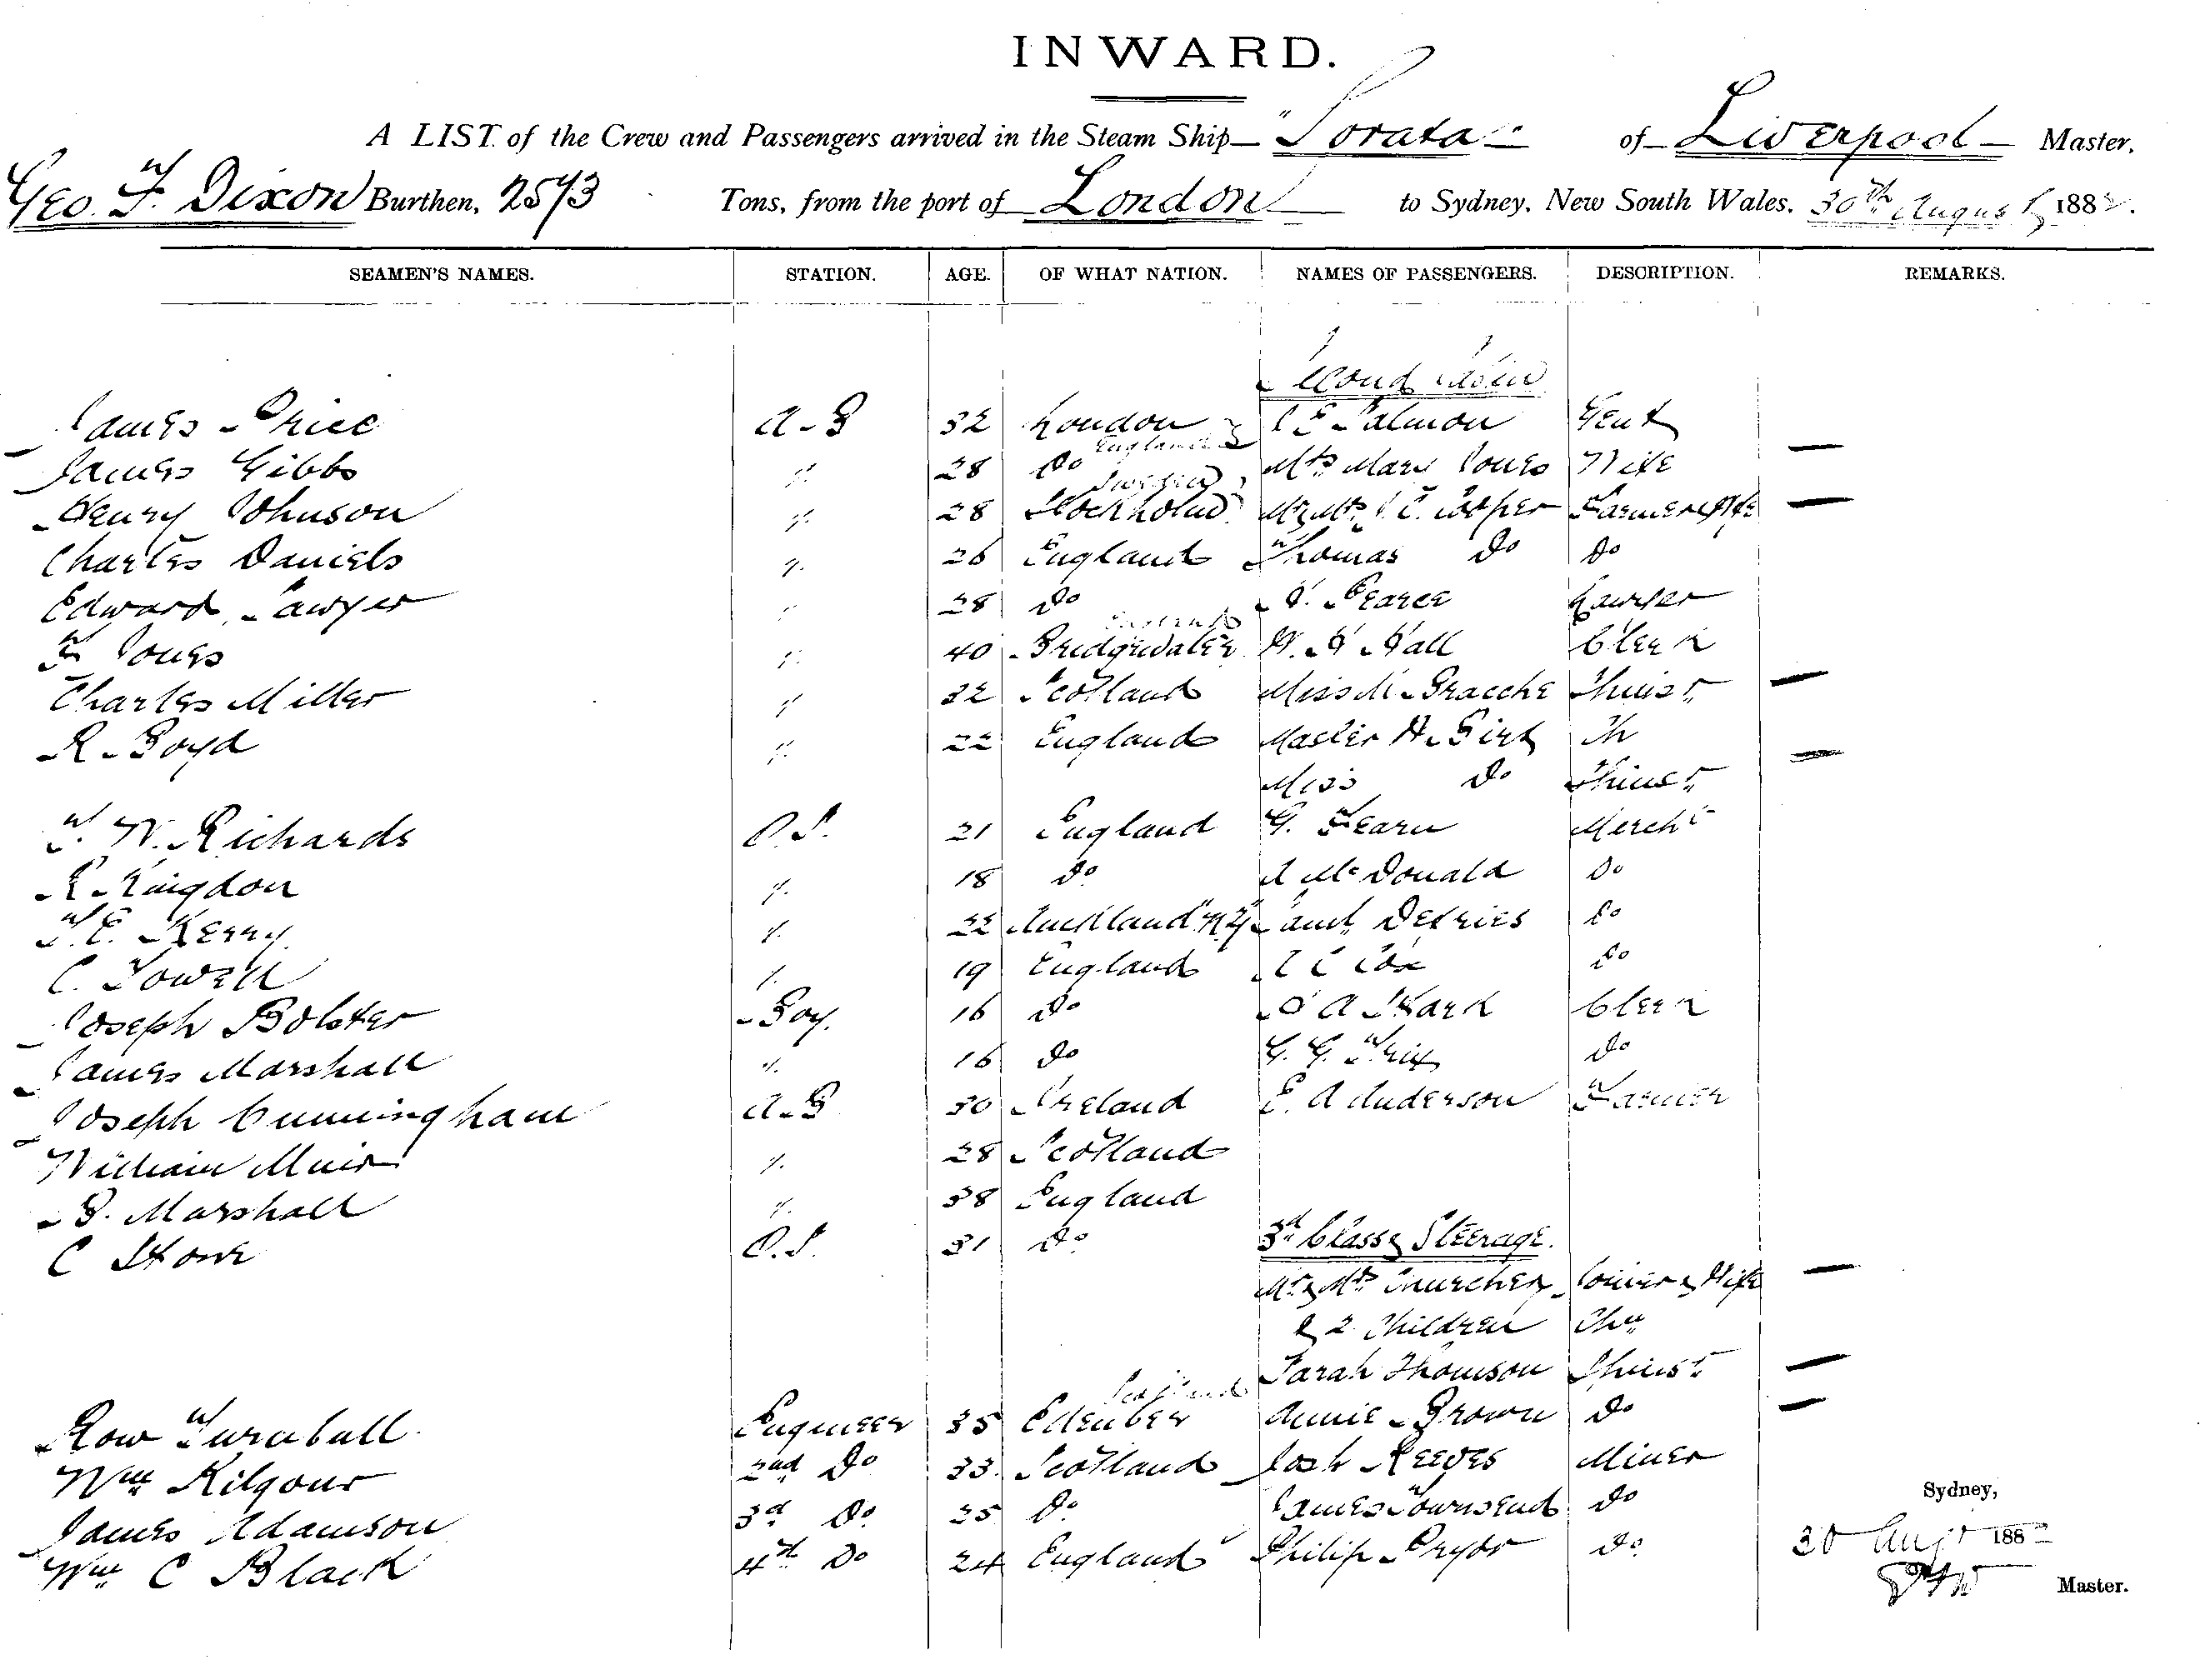 INWARD.
A LIST of the Crew and Passengers arrived in the Steam Ship "Sorata" of Liverpool Master,
Geo. F. Dixon Burthen, 2573 Tons, from the port of London to Sydney, New South Wales, 30th August 1882.
SEAMEN'S NAMES. STATION. AGE. OF WHAT NATION. NAMES OF PASSENGERS. DESCRIPTION. REMARKS.
Second Cabin
James Price A.B 32 London Salmon Gent
England
James Gibbs " 28 Do Mrs Mary Jones Wife
Sweden
Henry Johnson " 28 Stockholm Mr & Mrs Farmer & Wife
Charles Daniels " 26 England Thomas Do Do
Edward Sawyer " 28 Do Pearce Lawyer
England
F Jones " 40 Bridgewater Hall Clerk
Charles Miller " 32 Scotland Miss M. Spinst
R. Boyd " 22 England Master H. Ch
Miss Do Spinst
T. W. Richards O.S. 21 England G. Fearn Mercht
Kingdon " 18 Do A McDonald Do
T.E. Kerry " 22 Auckland N.Z. Saml Defries Do
C. Towell " 19 England Cox Do
Joseph Bolster Boy. 16 Do Clerk
James Marshall " 16 Do G. G. Do
Joseph Cunningham A.B 30 Ireland E. A Anderson Farmer
William Muir " 28 Scotland
B. Marshall " 38 England
C Stowe O.S. 31 Do
3rd Class & Steerage.
Mr & Mrs Churcher Joiner & Wife
& 2 Children Chn
Sarah Thomson Spinst
Scotland
Row Turnbull Engineer 35 Annie Brown Do
Wm Kilgour 2nd Do 33 Scotland Josh Reeves Miner
James Adamson 3d Do 25 Do James Townsend Do
Wm C Black 4th Do 24 England Philip Pryor Do
Sydney,
30 Augt 1882
Master.